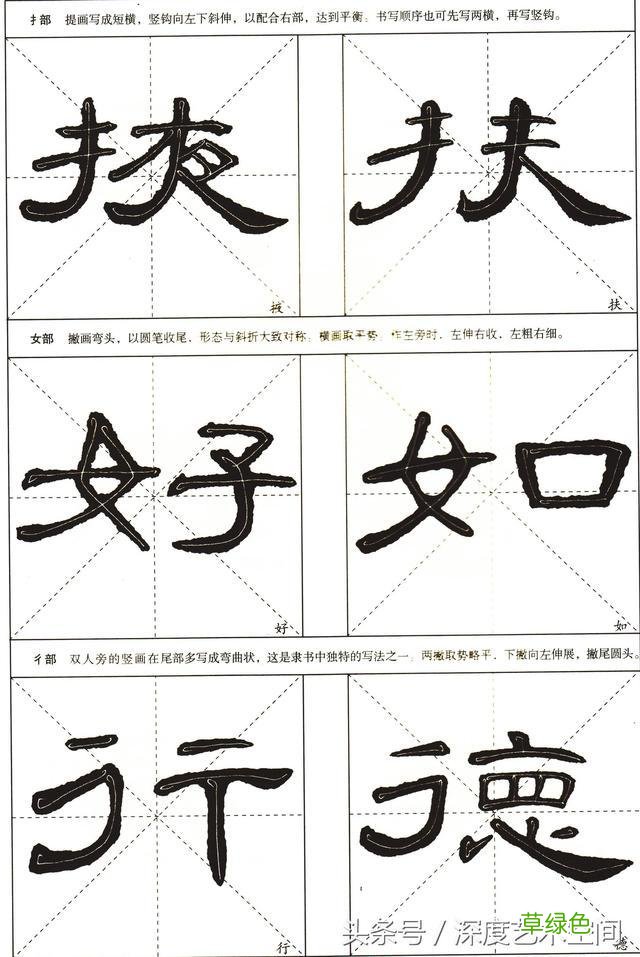 扌部 提画写成短横，竖钩向左下斜伸，以配合右部，达到平衡；书写顺序也可先写两横，再写竖钩。
掖 扶
掖 扶
女部 撇画弯头，以圆笔收尾，形态与斜折大致对称；横画取平势；作左旁时，左伸右收，左粗右细。
好 如
好 如
彳部 双人旁的竖画在尾部多写成弯曲状，这是隶书中独特的写法之一；两撇取势略平，下撇向左伸展，撇尾圆头。
行 德
行 德
头条号/深度艺术空间
草绿色